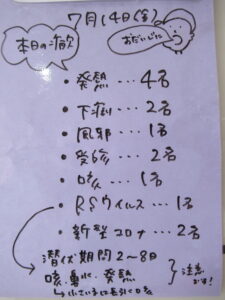 7月14日(金)
本日の病欠
おだいじに
・発熱…4名
・下痢…2名
・風邪…1名
・受診…2名
・咳…1名
・RSウイルス…1名
・新型コロナ…2名
潜伏期間2〜8日
咳、鼻水、発熱
↳小さい子は長引く咳
注意